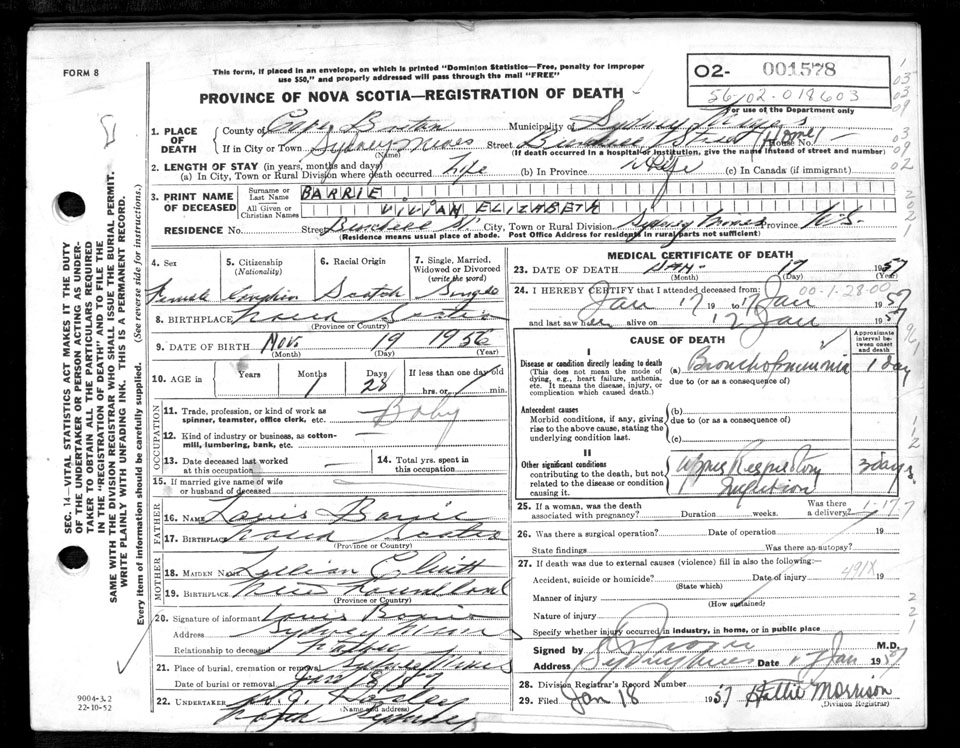 FORM 8
This form, if placed in an envelope, on which is printed "Dominion Statistics—Free, penalty for improper use $50," and properly addressed will pass through the mail "FREE"
02- 001578
56-02-018603
For use of the Department only
PROVINCE OF NOVA SCOTIA—REGISTRATION OF DEATH
1. PLACE OF DEATH
County of Cape Breton Municipality of Sydney Mines
If in City or Town Sydney Mines Street House No. Home
(Name) (If death occurred in a hospital or institution, give the name instead of street and number)
2. LENGTH OF STAY (in years, months and days)
(a) In City, Town or Rural Division where death occurred Life (b) In Province Life (c) In Canada (if immigrant)
3. PRINT NAME OF DECEASED
Surname or Last Name BARRIE
All Given or Christian Names VIVIAN ELIZABETH
RESIDENCE No. Street City, Town or Rural Division Sydney Mines Province N.S.
(Residence means usual place of abode. Post Office Address for residents in rural parts not sufficient)
4. Sex Female
5. Citizenship (Nationality) Canadian
6. Racial Origin Scotch
7. Single, Married, Widowed or Divorced (write the word) Single
8. BIRTHPLACE Nova Scotia
(Province or Country)
9. DATE OF BIRTH Nov. 19 1956
(Month) (Day) (Year)
10. AGE in Years Months 1 Days 28 If less than one day old hrs. or min.
OCCUPATION
11. Trade, profession, or kind of work as spinner, teamster, office clerk, etc. Baby
12. Kind of industry or business, as cotton-mill, lumbering, bank, etc. —
13. Date deceased last worked at this occupation —
14. Total yrs. spent in this occupation
15. If married give name of wife or husband of deceased
FATHER
16. NAME Louis Barrie
17. BIRTHPLACE Nova Scotia
(Province or Country)
MOTHER
18. MAIDEN NAME Lillian
19. BIRTHPLACE New Foundland
(Province or Country)
20. Signature of informant Louis Barrie
Address Sydney Mines
Relationship to deceased Father
21. Place of burial, cremation or removal Sydney Mines
Date of burial or removal Jan 18/57
22. UNDERTAKER
(Name and address)
North Sydney
MEDICAL CERTIFICATE OF DEATH
23. DATE OF DEATH Jan. 17 1957
(Month) (Day) (Year)
24. I HEREBY CERTIFY that I attended deceased from:
00-1-28-00
Jan 17 19 to 17 Jan 1957
and last saw her alive on 17 Jan 1957
CAUSE OF DEATH
Approximate interval between onset and death
I
Disease or condition directly leading to death
(This does not mean the mode of dying, e.g., heart failure, asthenia, etc. It means the disease, injury, or complication which caused death.)
(a) Bronchopneumonia 1 day
due to (or as a consequence of)
Antecedent causes
Morbid conditions, if any, giving rise to the above cause, stating the underlying condition last.
(b)
due to (or as a consequence of)
(c)
II
Other significant conditions
contributing to the death, but not related to the disease or condition causing it.
Upper Respiratory Infection 3 days
25. If a woman, was the death associated with pregnancy? Duration weeks. Was there a delivery?
26. Was there a surgical operation? Date of operation 19
State findings Was there an autopsy?
27. If death was due to external causes (violence) fill in also the following:—
Accident, suicide or homicide? Date of injury 19
(State which)
491X
Manner of injury
(How sustained)
Nature of injury
Specify whether injury occurred in industry, in home, or in public place
Signed by M.D.
Address Sydney Mines Date 17 Jan 1957
28. Division Registrar's Record Number
29. Filed Jan 18 1957 Hattie Morrison
(Division Registrar)
SEC. 14—VITAL STATISTICS ACT MAKES IT THE DUTY OF THE UNDERTAKER OR PERSON ACTING AS UNDERTAKER TO OBTAIN ALL THE PARTICULARS REQUIRED IN THE "REGISTRATION OF DEATH" AND TO FILE THE SAME WITH THE DIVISION REGISTRAR WHO SHALL ISSUE THE BURIAL PERMIT. WRITE PLAINLY WITH UNFADING INK. THIS IS A PERMANENT RECORD.
Every item of information should be carefully supplied. (See reverse side for instructions.)
9004-3.2
22-10-52